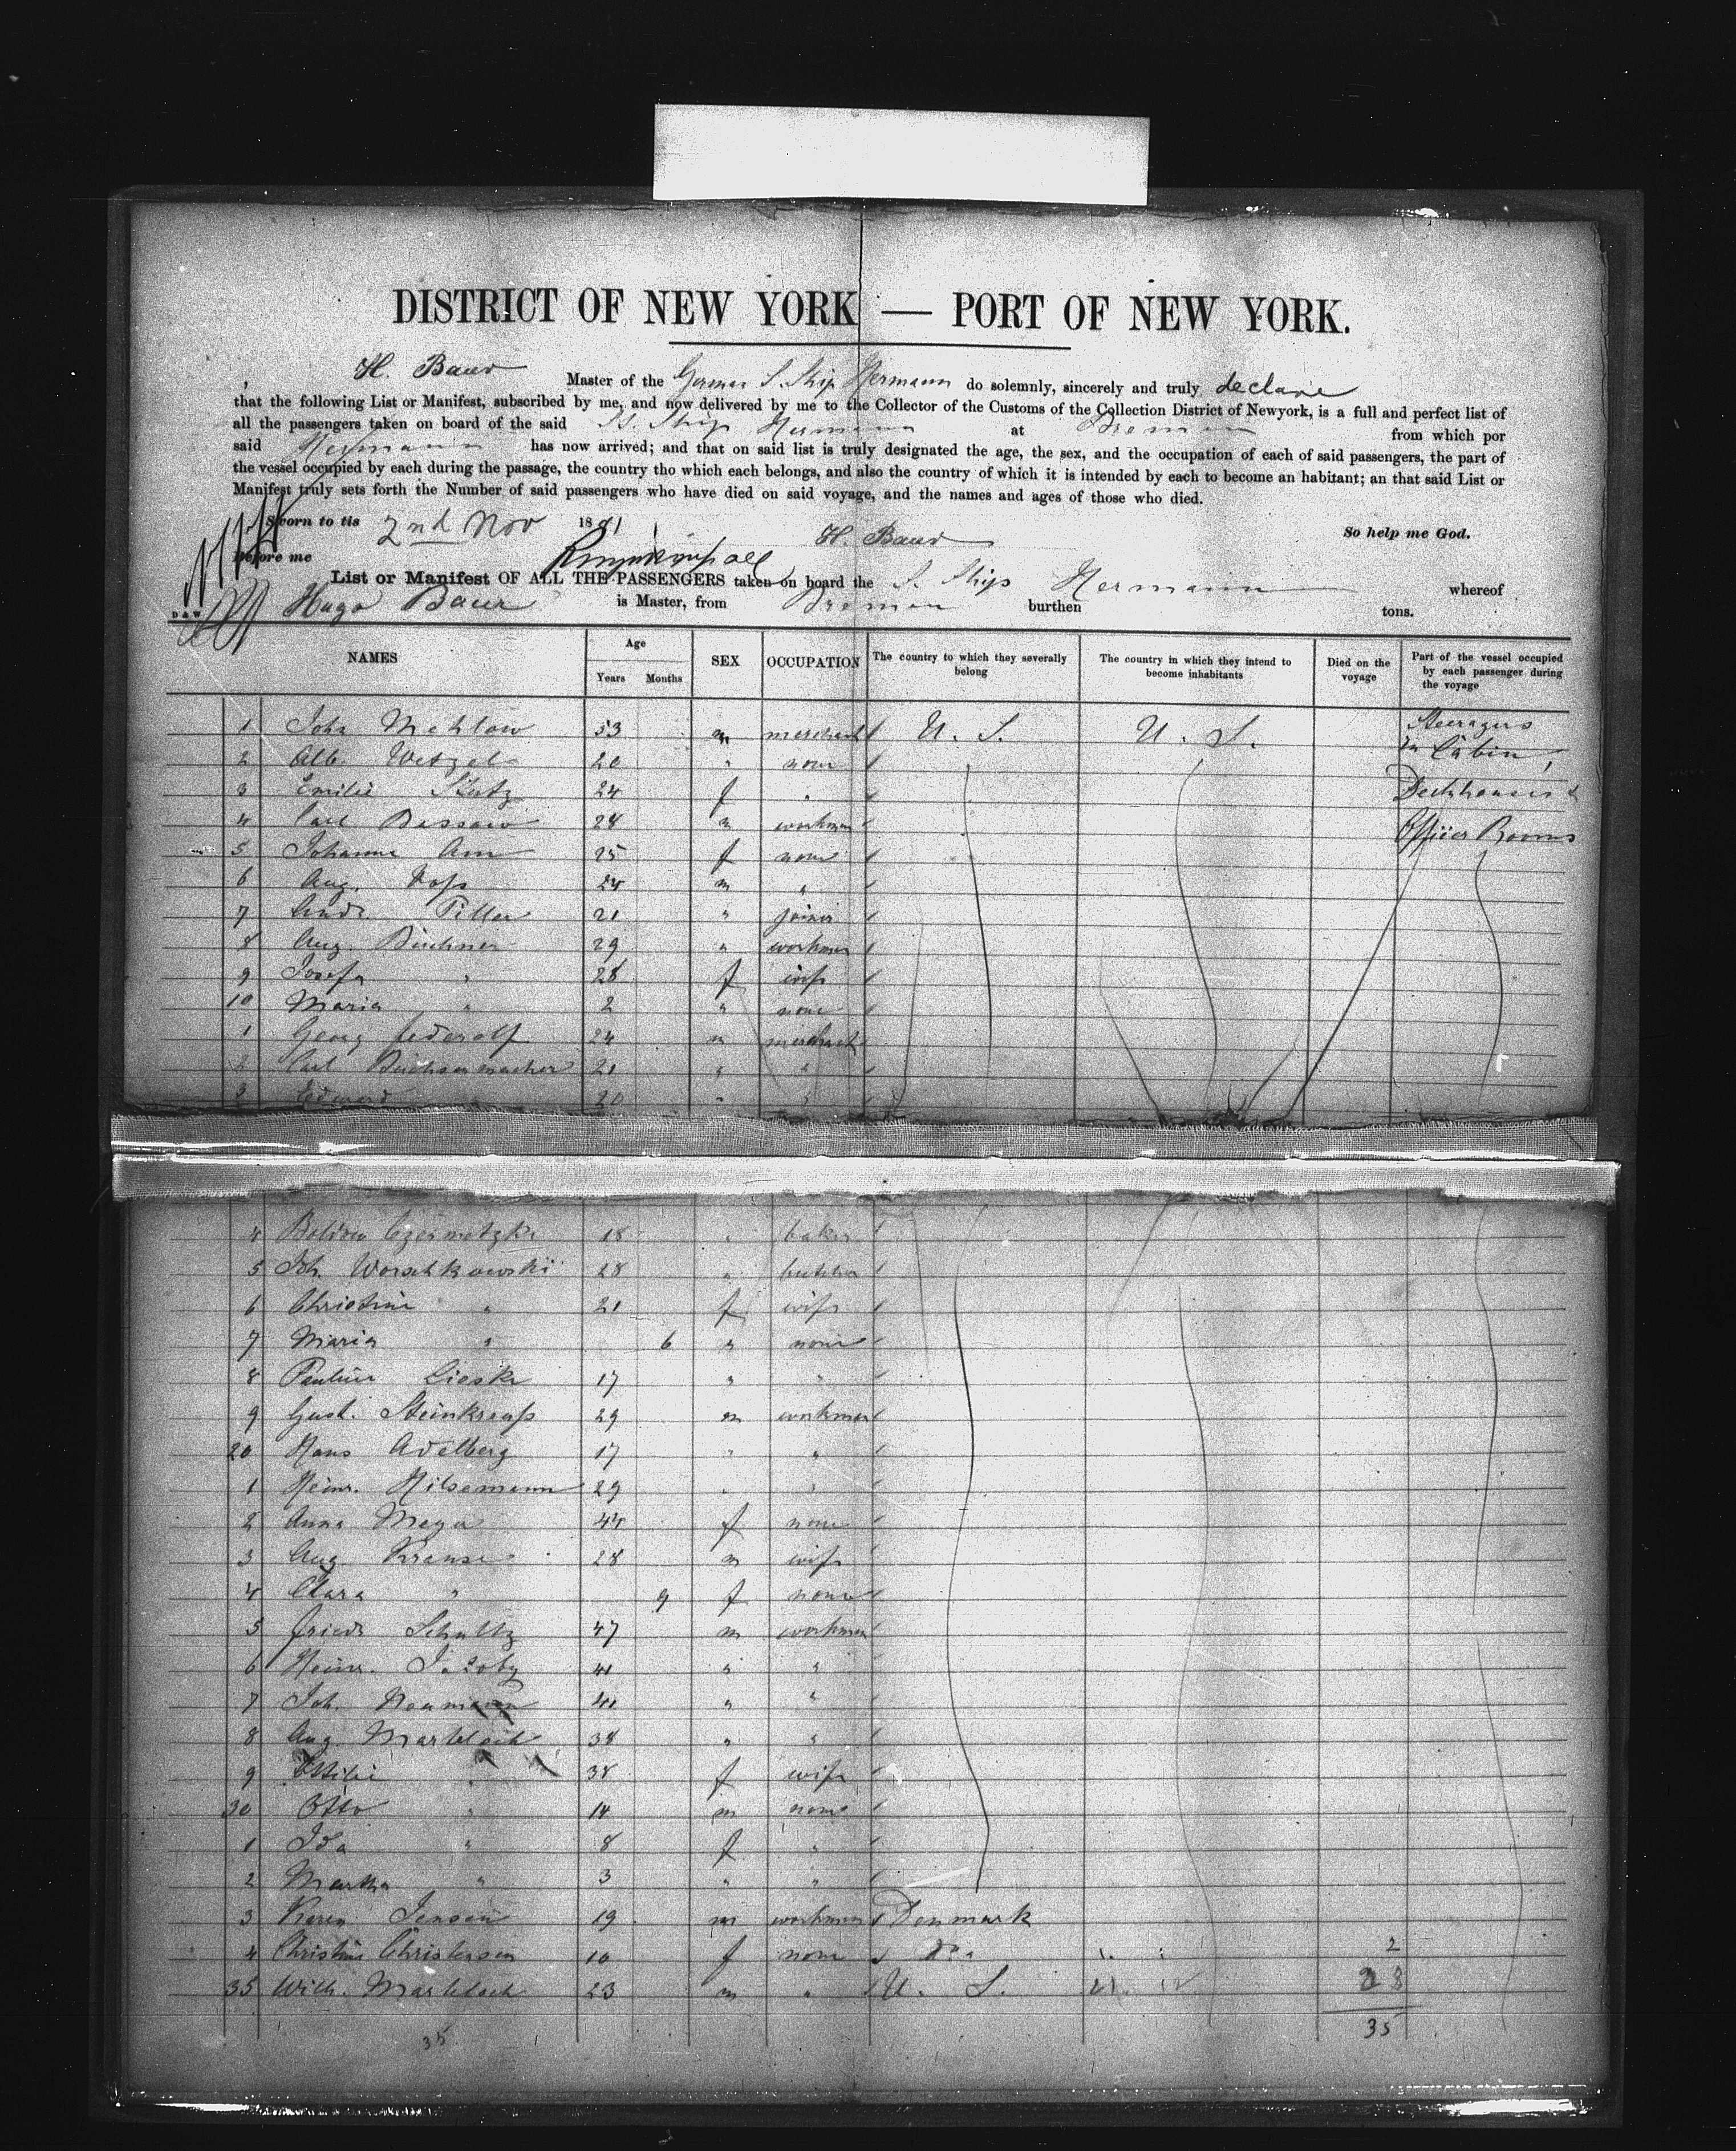 DISTRICT OF NEW YORK — PORT OF NEW YORK.
H. Baur Master of the German S. Ship Hermann do solemnly, sincerely and truly declare
that the following List or Manifest, subscribed by me, and now delivered by me to the Collector of the Customs of the Collection District of Newyork, is a full and perfect list of
all the passengers taken on board of the said S. Ship Hermann at Bremen from which por
said Hermann has now arrived; and that on said list is truly designated the age, the sex, and the occupation of each of said passengers, the part of
the vessel occupied by each during the passage, the country tho which each belongs, and also the country of which it is intended by each to become an habitant; an that said List or
Manifest truly sets forth the Number of said passengers who have died on said voyage, and the names and ages of those who died.
Sworn to tis 2nd Nov 1881 H. Baur So help me God.
Before me
List or Manifest OF ALL THE PASSENGERS taken on board the S. Ship Hermann whereof
Hugo Baur is Master, from Bremen burthen tons.
NAMES Age Years Months SEX OCCUPATION The country to which they severally belong The country in which they intend to become inhabitants Died on the voyage Part of the vessel occupied by each passenger during the voyage
1 John Mehlow 53 m merchant U. S. U. S. Steerages
in Cabin,
2 Alb. Wetzel 20 " none
3 Emilie Stutz 24 f " Deckhouses &
4 Carl Bessau 24 m workman Officer Rooms
5 Johanne Am 25 f none
6 Aug. 24 m "
7 Andr. Piller 21 " joiner
8 Aug. Büchner 29 " workman
9 Josefa " 28 f wife
10 Maria " 2 " none
1 Georg Federolf 24 m merchant
2 Carl Büchsenmacher 21 " "
3 Edward " 20 " "
4 18 " baker
5 Joh. Worschkowski 28 " butcher
6 Christine " 21 f wife
7 Maria " 6 " none
8 Pauline Lieske 17 " "
9 Gust. Steinkrauss 29 m workman
20 Hans Adelberg 17 " "
1 Heinr. Hilsemann 29 " "
2 Anna Meyer 44 f none
3 Aug Krause 28 m wife
4 Clara " 9 f none
5 Friedr Schultz 47 m workman
6 Heinr. Jacoby 41 " "
7 Joh. Neumann 41 " "
8 Aug. Marteloch 38 " "
9 Ottilie " 38 f wife
30 Otto " 14 m none
1 Ida " 8 f "
2 Martha " 3 " "
3 Karen Jensen 19 m workman Denmark
4 Christine Christensen 10 f none Do. " " 2
35 Wilh. Marteloch 23 m " U. S. U. S. 33
35 35